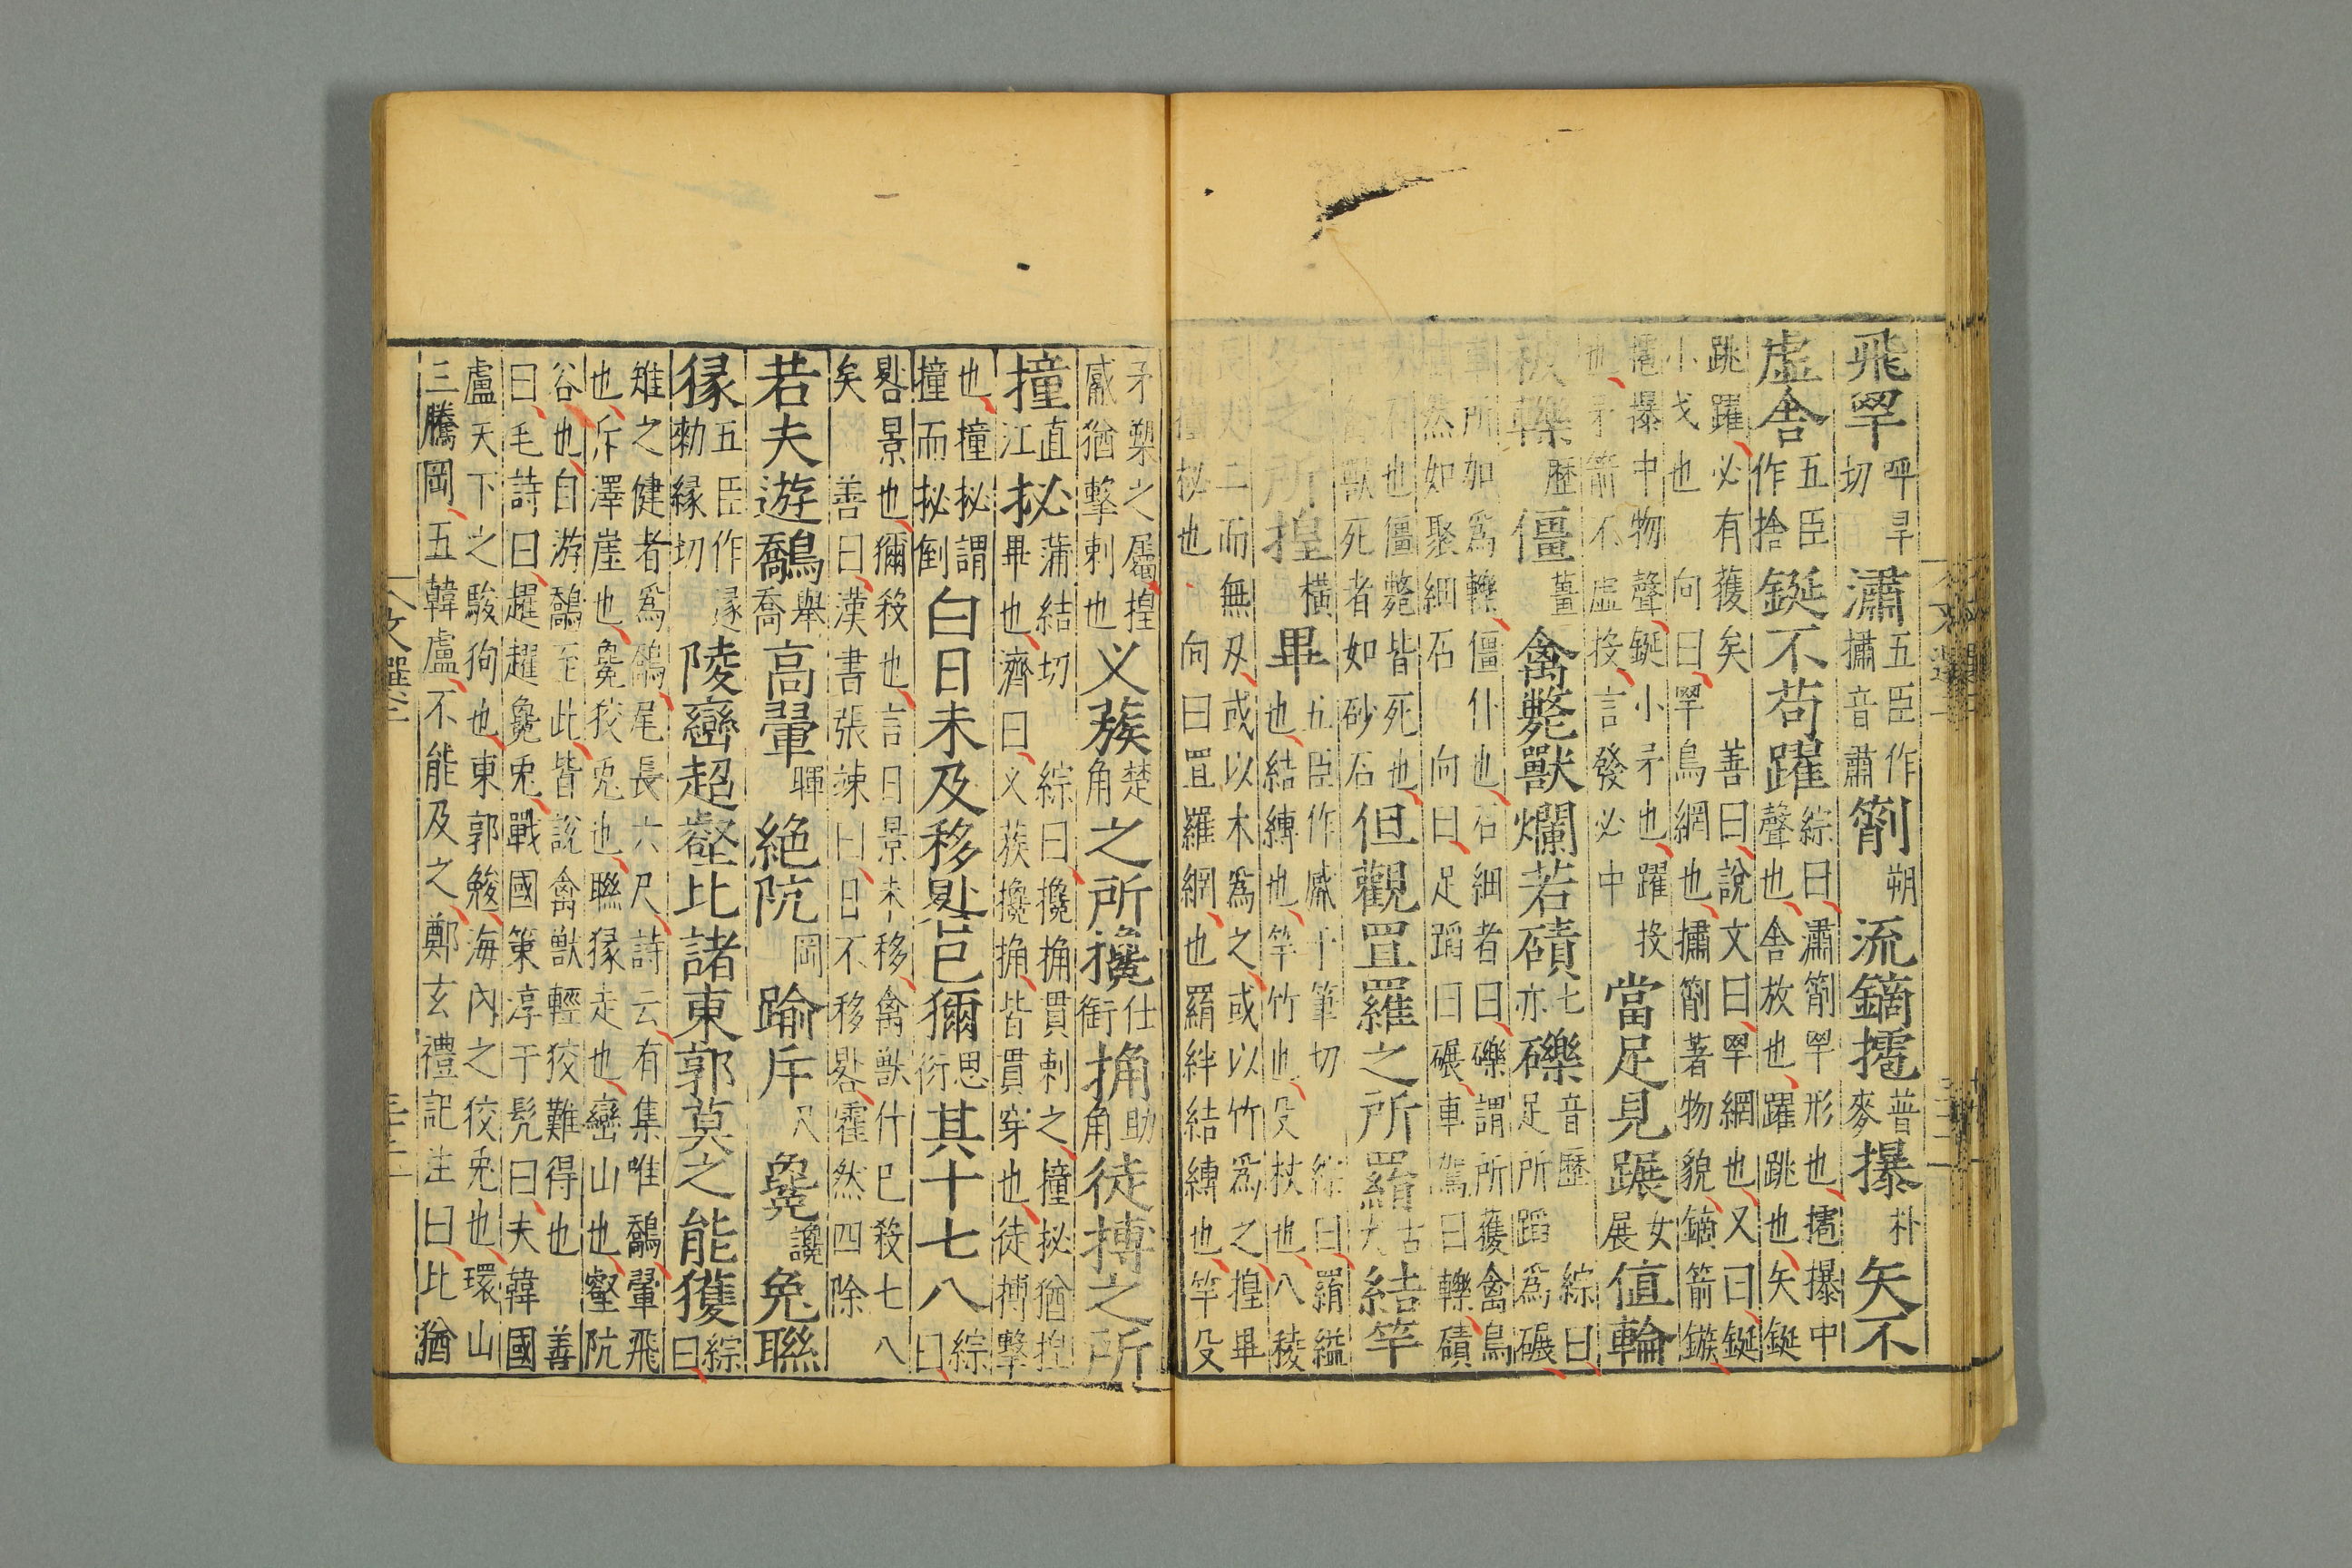 飛罕呼旱切潚五臣作橚音肅箾朔流鏑㩧普麥㩧朴矢不
虛舍五臣作捨鋋不苟躍綜曰潚箾罕形也聲也舍放也躍跳也矢鋋
跳躍必有獲矣善曰說文曰罕網也又曰鋋小戈也向曰罕鳥網也橚箾著物貌鏑箭鏃
中物聲鋋小矛也躍投也矛箭不虛投言發必中當足見蹍女展值輪
被轢歷僵薑禽斃獸爛若磧七亦礫音歷綜曰足所蹈爲碾
車所加爲轢僵仆也石細者曰礫謂所獲禽鳥然如聚細石向曰足蹈曰碾車駕曰轢磧
也僵斃皆死也獸死者如砂石但觀罝羅之所羂古犬結竿
之所揘橫畢五臣作㓖于筆切綜曰羂縊也結縛也竿竹也殳杖也八稜
二而無刃或以木爲之或以竹爲之揘畢柲也向曰罝羅網也羂絆結縛也竿殳
矛槊之屬揘㓖猶擊刺也义蔟楚角之所攙仕銜捔助角徒搏之所
撞直江㧙蒲結切畢也濟曰义蔟攙捔皆貫穿也徒搏擊綜曰攙捔貫刺之撞㧙猶揘
也撞㧙謂撞而㧙倒白日未及移晷已獮思衍其十七八綜曰
晷景也獮殺也言日景未移禽獸什已殺七八矣善曰漢書張竦曰日不移晷霍然四除
若夫遊鷮舉喬高翬暉絶阬岡踰斥尺毚讒兔聯
猭五臣作逯勑緣切陵巒超壑比諸東郭莫之能獲綜曰
雉之健者爲鷮尾長六尺詩云有集唯鷮翬飛也斥澤崖也毚狡兔也聯猭走也巒山也壑阬
谷也自游鷮至此皆說禽獸輕狡難得也善曰毛詩曰趯趯毚兔戰國策淳于髠曰夫韓國
盧天下之駿狗也東郭㕙海內之狡兔也環山三騰岡五韓盧不能及之鄭玄禮記注曰比猶